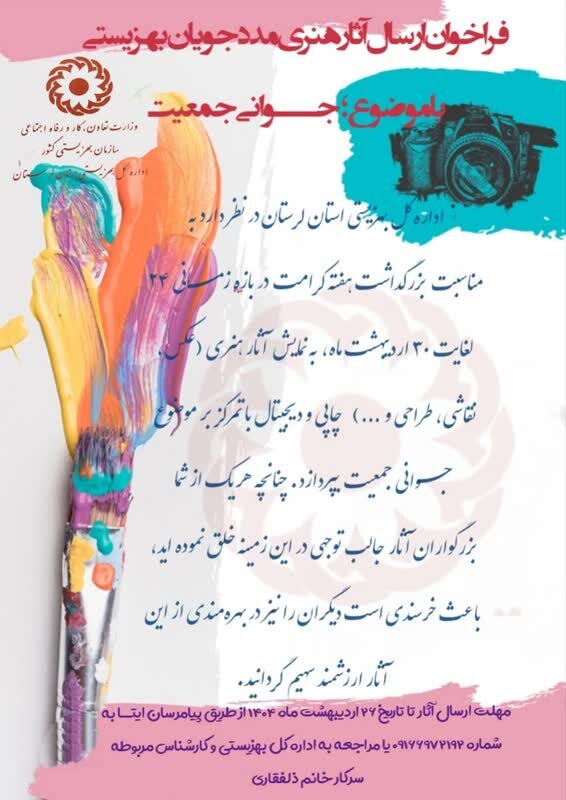 فراخوان ارسال آثار هنری مددجویان بهزیستی
با موضوع؛ جوانی جمعیت
وزارت تعاون، کار و رفاه اجتماعی
سازمان بهزیستی کشور
اداره کل بهزیستی استان لرستان
اداره کل بهزیستی استان لرستان در نظر دارد به
مناسبت بزرگداشت هفته کرامت در بازه زمانی ۲۴
لغایت ۳۰ اردیبهشت ماه، به نمایش آثار هنری (عکس،
نقاشی، طراحی و ...) چاپی و دیجیتال با تمرکز بر موضوع
جوانی جمعیت بپردازد. چنانچه هریک از شما
بزرگواران آثار جالب توجهی در این زمینه خلق نموده اید،
باعث خرسندی است دیگران را نیز در بهره‌مندی از این
آثار ارزشمند سهیم گردانید.
مهلت ارسال آثار تا تاریخ ۲۶ اردیبهشت ماه ۱۴۰۴ از طریق پیامرسان ایتا به
شماره ۰۹۱۶۶۹۷۲۱۹۲ یا مراجعه به اداره کل بهزیستی و کارشناس مربوطه
سرکار خانم ذلفقاری